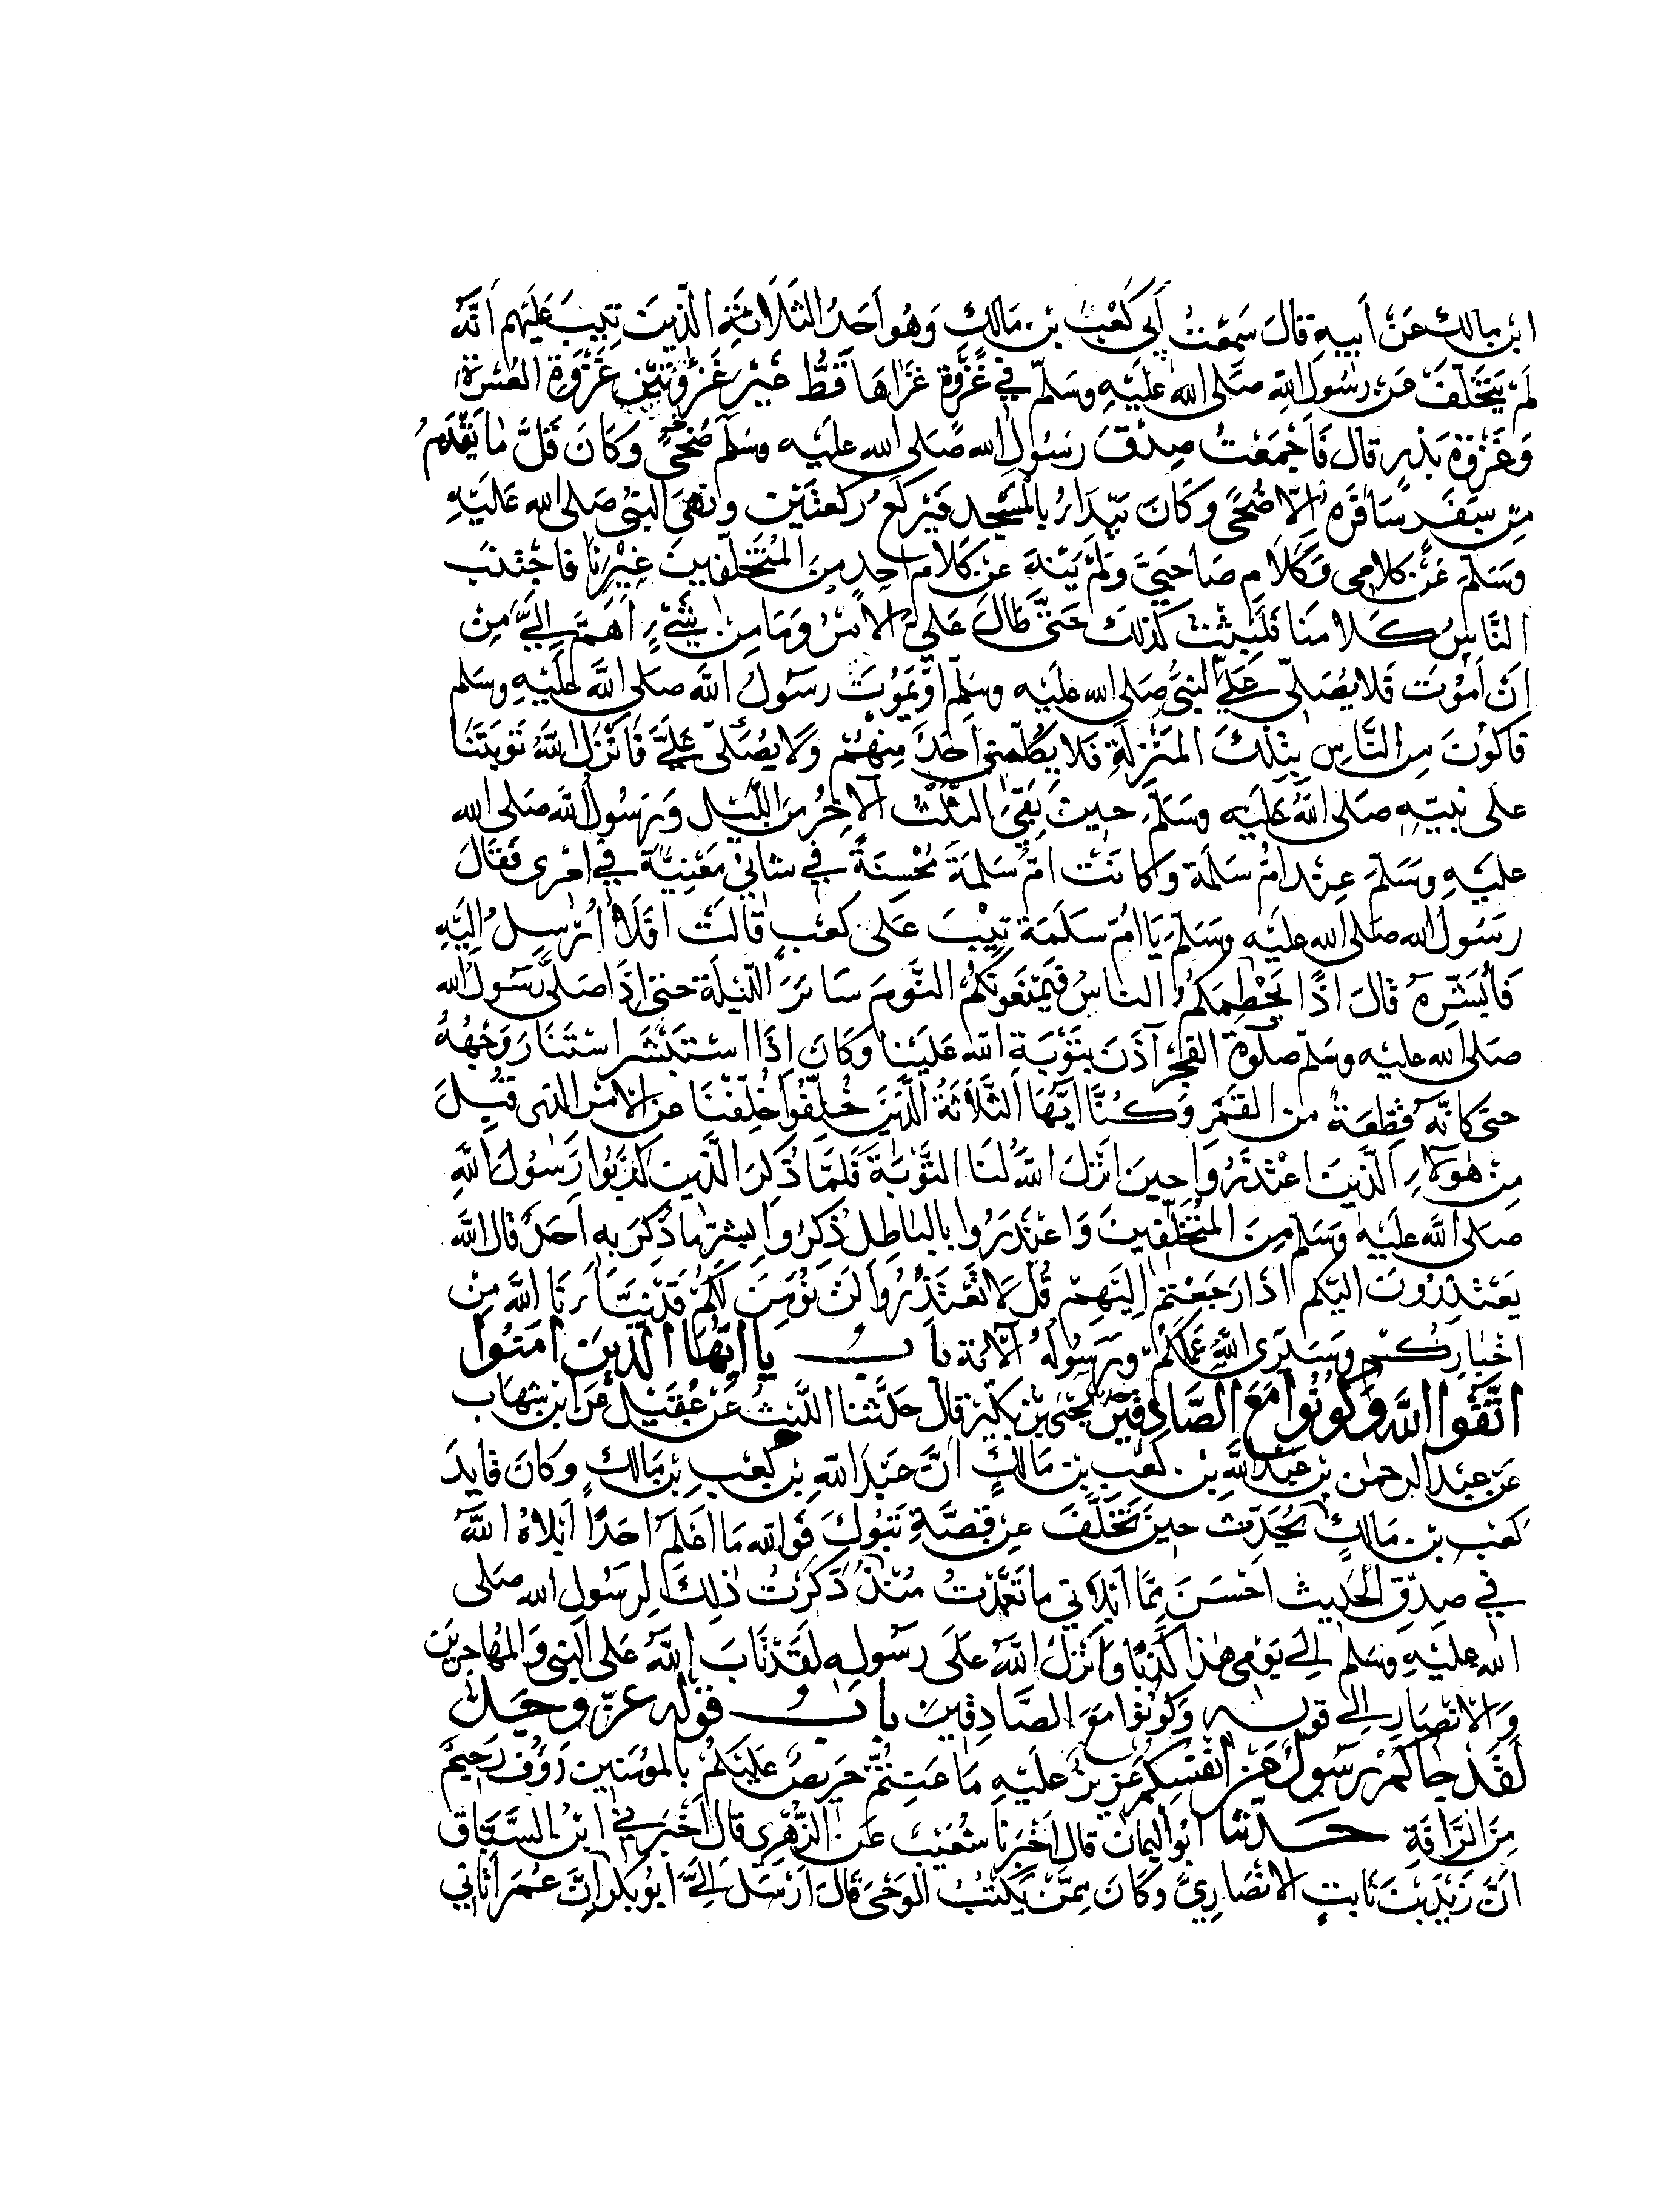 ابن مالك عن ابيه قال سمعت أبي كعب بن مالك وهو احد الثلاثة الذين تيب عليهم انه
لم يتخلف عن رسول الله صلى الله عليه وسلم في غزوة غزاها قط غير غزوتين غزوة العسرة
وغزوة بدر قال فاجمعت صدق رسول الله صلى الله عليه وسلم ضحى وكان قل ما يقدم
من سفر سافره الا ضحى وكان يبدأ بالمسجد فيركع ركعتين ونهى النبي صلى الله عليه
وسلم عن كلامي وكلام صاحبي ولم ينه عن كلام احد من المتخلفين غيرنا فاجتنب
الناس كلامنا فلبثت كذلك حتى طال علي الامر وما من شيء اهم الي من
ان أموت فلا يصلي علي النبي صلى الله عليه وسلم او يموت رسول الله صلى الله عليه وسلم
فاكون من الناس بتلك المنزلة فلا يكلمني احد منهم ولا يصلى علي فانزل الله توبتنا
على نبيه صلى الله عليه وسلم حين بقي الثلث الآخر من الليل ورسول الله صلى الله
عليه وسلم عند ام سلمة وكانت ام سلمة محسنة في شاني معنية في امري فقال
رسول الله صلى الله عليه وسلم يا ام سلمة تيب على كعب قالت افلا ارسل اليه
فابشره قال اذا يحطمكم الناس فيمنعونكم النوم سائر الليلة حتى اذا صلى رسول الله
صلى الله عليه وسلم صلوة الفجر آذن بتوبة الله علينا وكان اذا استبشر استنار وجهه
حتى كانه قطعة من القمر وكنا ايها الثلاثة الذين خلفوا خلفنا عن الامر الذي قبل
من هولاء الذين اعتذروا حين انزل الله لنا التوبة فلما ذكر الذين كذبوا رسول الله
صلى الله عليه وسلم من المتخلفين واعتذروا بالباطل ذكروا بشر ما ذكر به احد قال الله
يعتذرون اليكم اذا رجعتم اليهم قل لا تعتذروا لن نؤمن لكم قد نبأنا الله من
اخباركم وسيرى الله عملكم ورسوله الآية باب يا ايها الذين امنوا
اتقوا الله وكونوا مع الصادقين يحيى بن بكير قال حدثنا الليث عن عقيل عن ابن شهاب
عن عبد الرحمن بن عبد الله بن كعب بن مالك ان عبد الله بن كعب بن مالك وكان قايد
كعب بن مالك يحدث حين تخلف عن قصة تبوك فوالله ما اعلم احدا ابلاه الله
في صدق الحديث احسن مما ابلاني ما تعمدت منذ ذكرت ذلك لرسول الله صلى
الله عليه وسلم الى يومي هذا كذبا وانزل الله على رسوله لقد تاب الله على النبي والمهاجرين
والانصار الى قوله وكونوا مع الصادقين باب قوله عز وجل
لقد جاكم رسول من انفسكم عزيز عليه ما عنتم حريص عليكم بالمؤمنين رؤوف رحيم
من الرافة حدثنا ابو اليمان قال اخبرنا شعيب عن الزهري قال اخبرني ابن السباق
ان زيد بن ثابت الانصاري وكان ممن يكتب الوحي قال ارسل الي ابو بكر ان عمر أتاني